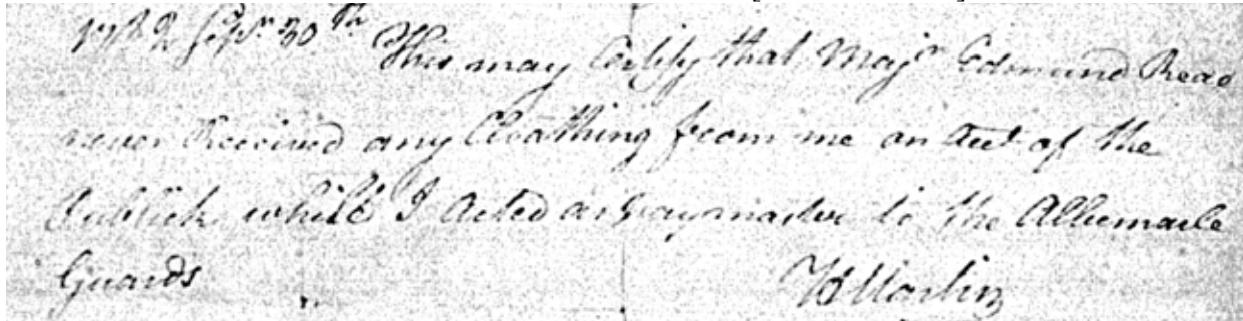 1782 Sepr. 30th This may Certify that Majr Edmund Read
never Received any Cloathing from me on Acct of the
Publick while I Acted as paymaster to the Albemarle
Guards Martin